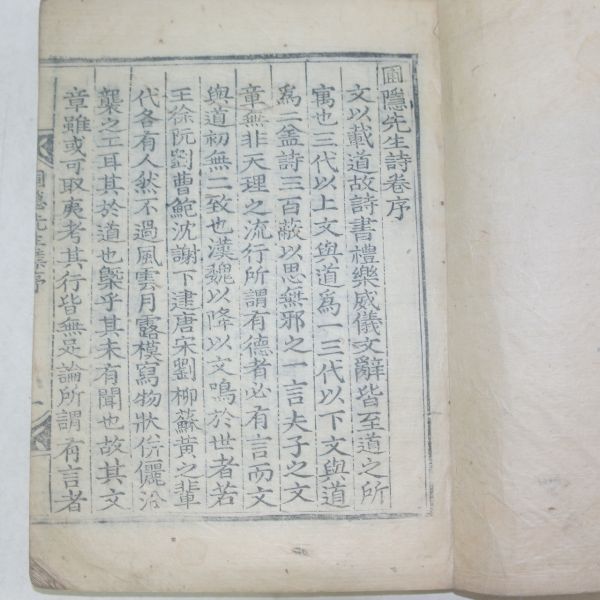 圃隱先生詩卷序
文以載道故詩書禮樂威儀文辭皆至道之所
寓也三代以上文與道為一三代以下文與道
為二盖詩三百蔽以思無邪之一言夫子之文
章無非天理之流行所謂有德者必有言而文
與道初無二致也漢魏以降以文鳴於世者若
王徐阮劉曹鮑沈謝下逮唐宋劉柳蘇黃之輩
代各有人然不過風雲月露模寫物狀倂儷沿
襲之工耳其於道也槩乎其未有聞也故其文
章雖或可取夷考其行皆無足論所謂有言者
圃隱先生集序